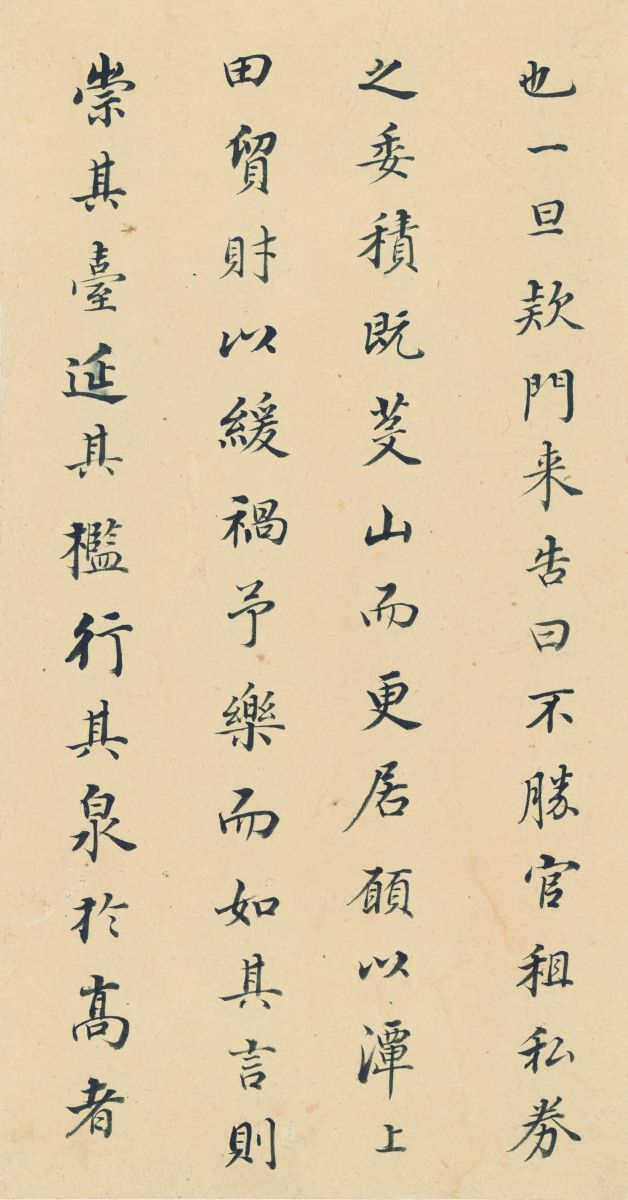 也一旦款門来告曰不勝官租私券
之委積既芟山而更居願以潭上
田貿財以緩禍予樂而如其言則
崇其臺延其檻行其泉於髙者